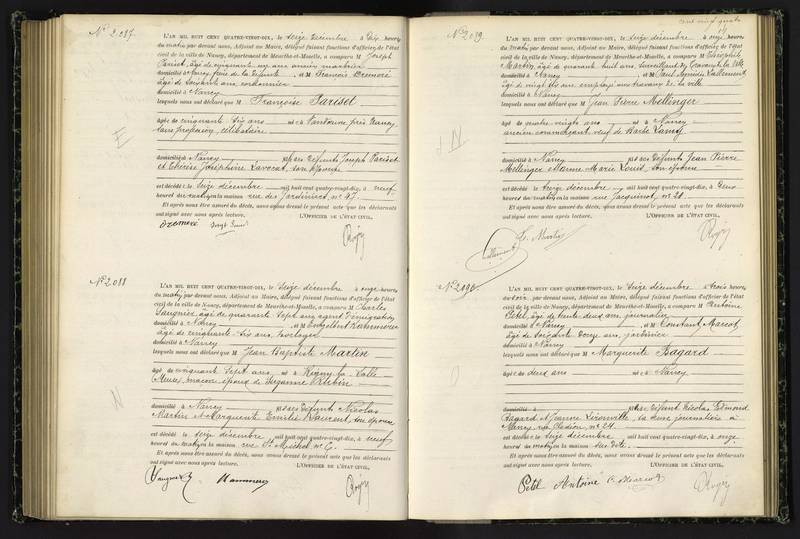 cent vingt quatre
N° 2.087.
L'AN MIL HUIT CENT QUATRE-VINGT-DIX, le seize décembre à dix heures
du matin par devant nous, Adjoint au Maire, délégué faisant fonctions d'officier de l'état
civil de la ville de Nancy, département de Meurthe-et-Moselle, a comparu M Joseph
Pariset, âgé de cinquante un ans, ancien
domicilié à Nancy, frère de la défunte, et M François Drémoré
âgé de soixante ans, cordonnier
domicilié à Nancy
lesquels nous ont déclaré que M Françoise Pariset
âgée de cinquante six ans née à Vandœuvre près Nancy
sans profession, célibataire
domiciliée à Nancy des défunts Joseph Pariset
et Thérèse Joséphine Lavocat, son épouse
est décédée le seize décembre mil huit cent quatre-vingt-dix, à neuf
heures du matin en la maison rue des Jardiniers, n° 47.
Et après nous être assuré du décès, nous avons dressé le présent acte que les déclarants
ont signé avec nous après lecture. L'OFFICIER DE L'ÉTAT CIVIL,
E
N° 2.088
L'AN MIL HUIT CENT QUATRE-VINGT-DIX, le seize décembre à onze heures
du matin par devant nous, Adjoint au Maire, délégué faisant fonctions d'officier de l'état
civil de la ville de Nancy, département de Meurthe-et-Moselle, a comparu M Charles
âgé de quarante sept ans, agent d'émigration
domicilié à Nancy et M Engelbert Hammerer
âgé de cinquante six ans, horloger
domicilié à Nancy
lesquels nous ont déclaré que M Jean Baptiste Martin
âgé de cinquante sept ans né à Rigny la Salle
(Meuse) maçon, époux de Suzanne
domicilié à Nancy des défunts Nicolas
Martin et Marguerite Emilie Laurent, son épouse
est décédé le seize décembre mil huit cent quatre-vingt-dix, à neuf
heures du matin en la maison rue St Michel, n° 6.
Et après nous être assuré du décès, nous avons dressé le présent acte que les déclarants
ont signé avec nous après lecture. L'OFFICIER DE L'ÉTAT CIVIL,
Hammerer
N
N° 2.089.
L'AN MIL HUIT CENT QUATRE-VINGT-DIX, le seize décembre à onze heures
du matin par devant nous, Adjoint au Maire, délégué faisant fonctions d'officier de l'état
civil de la ville de Nancy, département de Meurthe-et-Moselle, a comparu M Théophile
Martin, âgé de quarante huit ans, surveillant des travaux de la ville
domicilié à Nancy et M Paul Lallement
âgé de vingt six ans employé aux travaux de la ville
domicilié à Nancy
lesquels nous ont déclaré que M Jean Pierre Mellinger
âgé de quatre vingts ans né à Nancy
ancien commerçant, veuf de Barbe Lamy
domicilié à Nancy fils des défunts Jean Pierre
Mellinger et Anne Marie Louis, son épouse
est décédé le seize décembre mil huit cent quatre-vingt-dix, à deux
heures du matin en la maison rue Jacquinot, n° 20.
Et après nous être assuré du décès, nous avons dressé le présent acte que les déclarants
ont signé avec nous après lecture. L'OFFICIER DE L'ÉTAT CIVIL,
Martin
Lallement
N
N° 2.090.
L'AN MIL HUIT CENT QUATRE-VINGT-DIX, le seize décembre à trois heures
du soir par devant nous, Adjoint au Maire, délégué faisant fonctions d'officier de l'état
civil de la ville de Nancy, département de Meurthe-et-Moselle, a comparu M Antoine
Petel, âgé de trente deux ans, journalier
domicilié à Nancy et M Constant Marcot
âgé de soixante douze ans, jardinier
domicilié à Nancy
lesquels nous ont déclaré que M Marguerite Bagard
âgée de deux ans née à Nancy
domiciliée à défunt Nicolas Edmond
Bagard et Jeanne journalière à
Nancy, rue n° 24.
est décédée le seize décembre mil huit cent quatre-vingt-dix, à onze
heures du matin en la maison sus dite
Et après nous être assuré du décès, nous avons dressé le présent acte que les déclarants
ont signé avec nous après lecture. L'OFFICIER DE L'ÉTAT CIVIL,
Petel Antoine C. Marcot